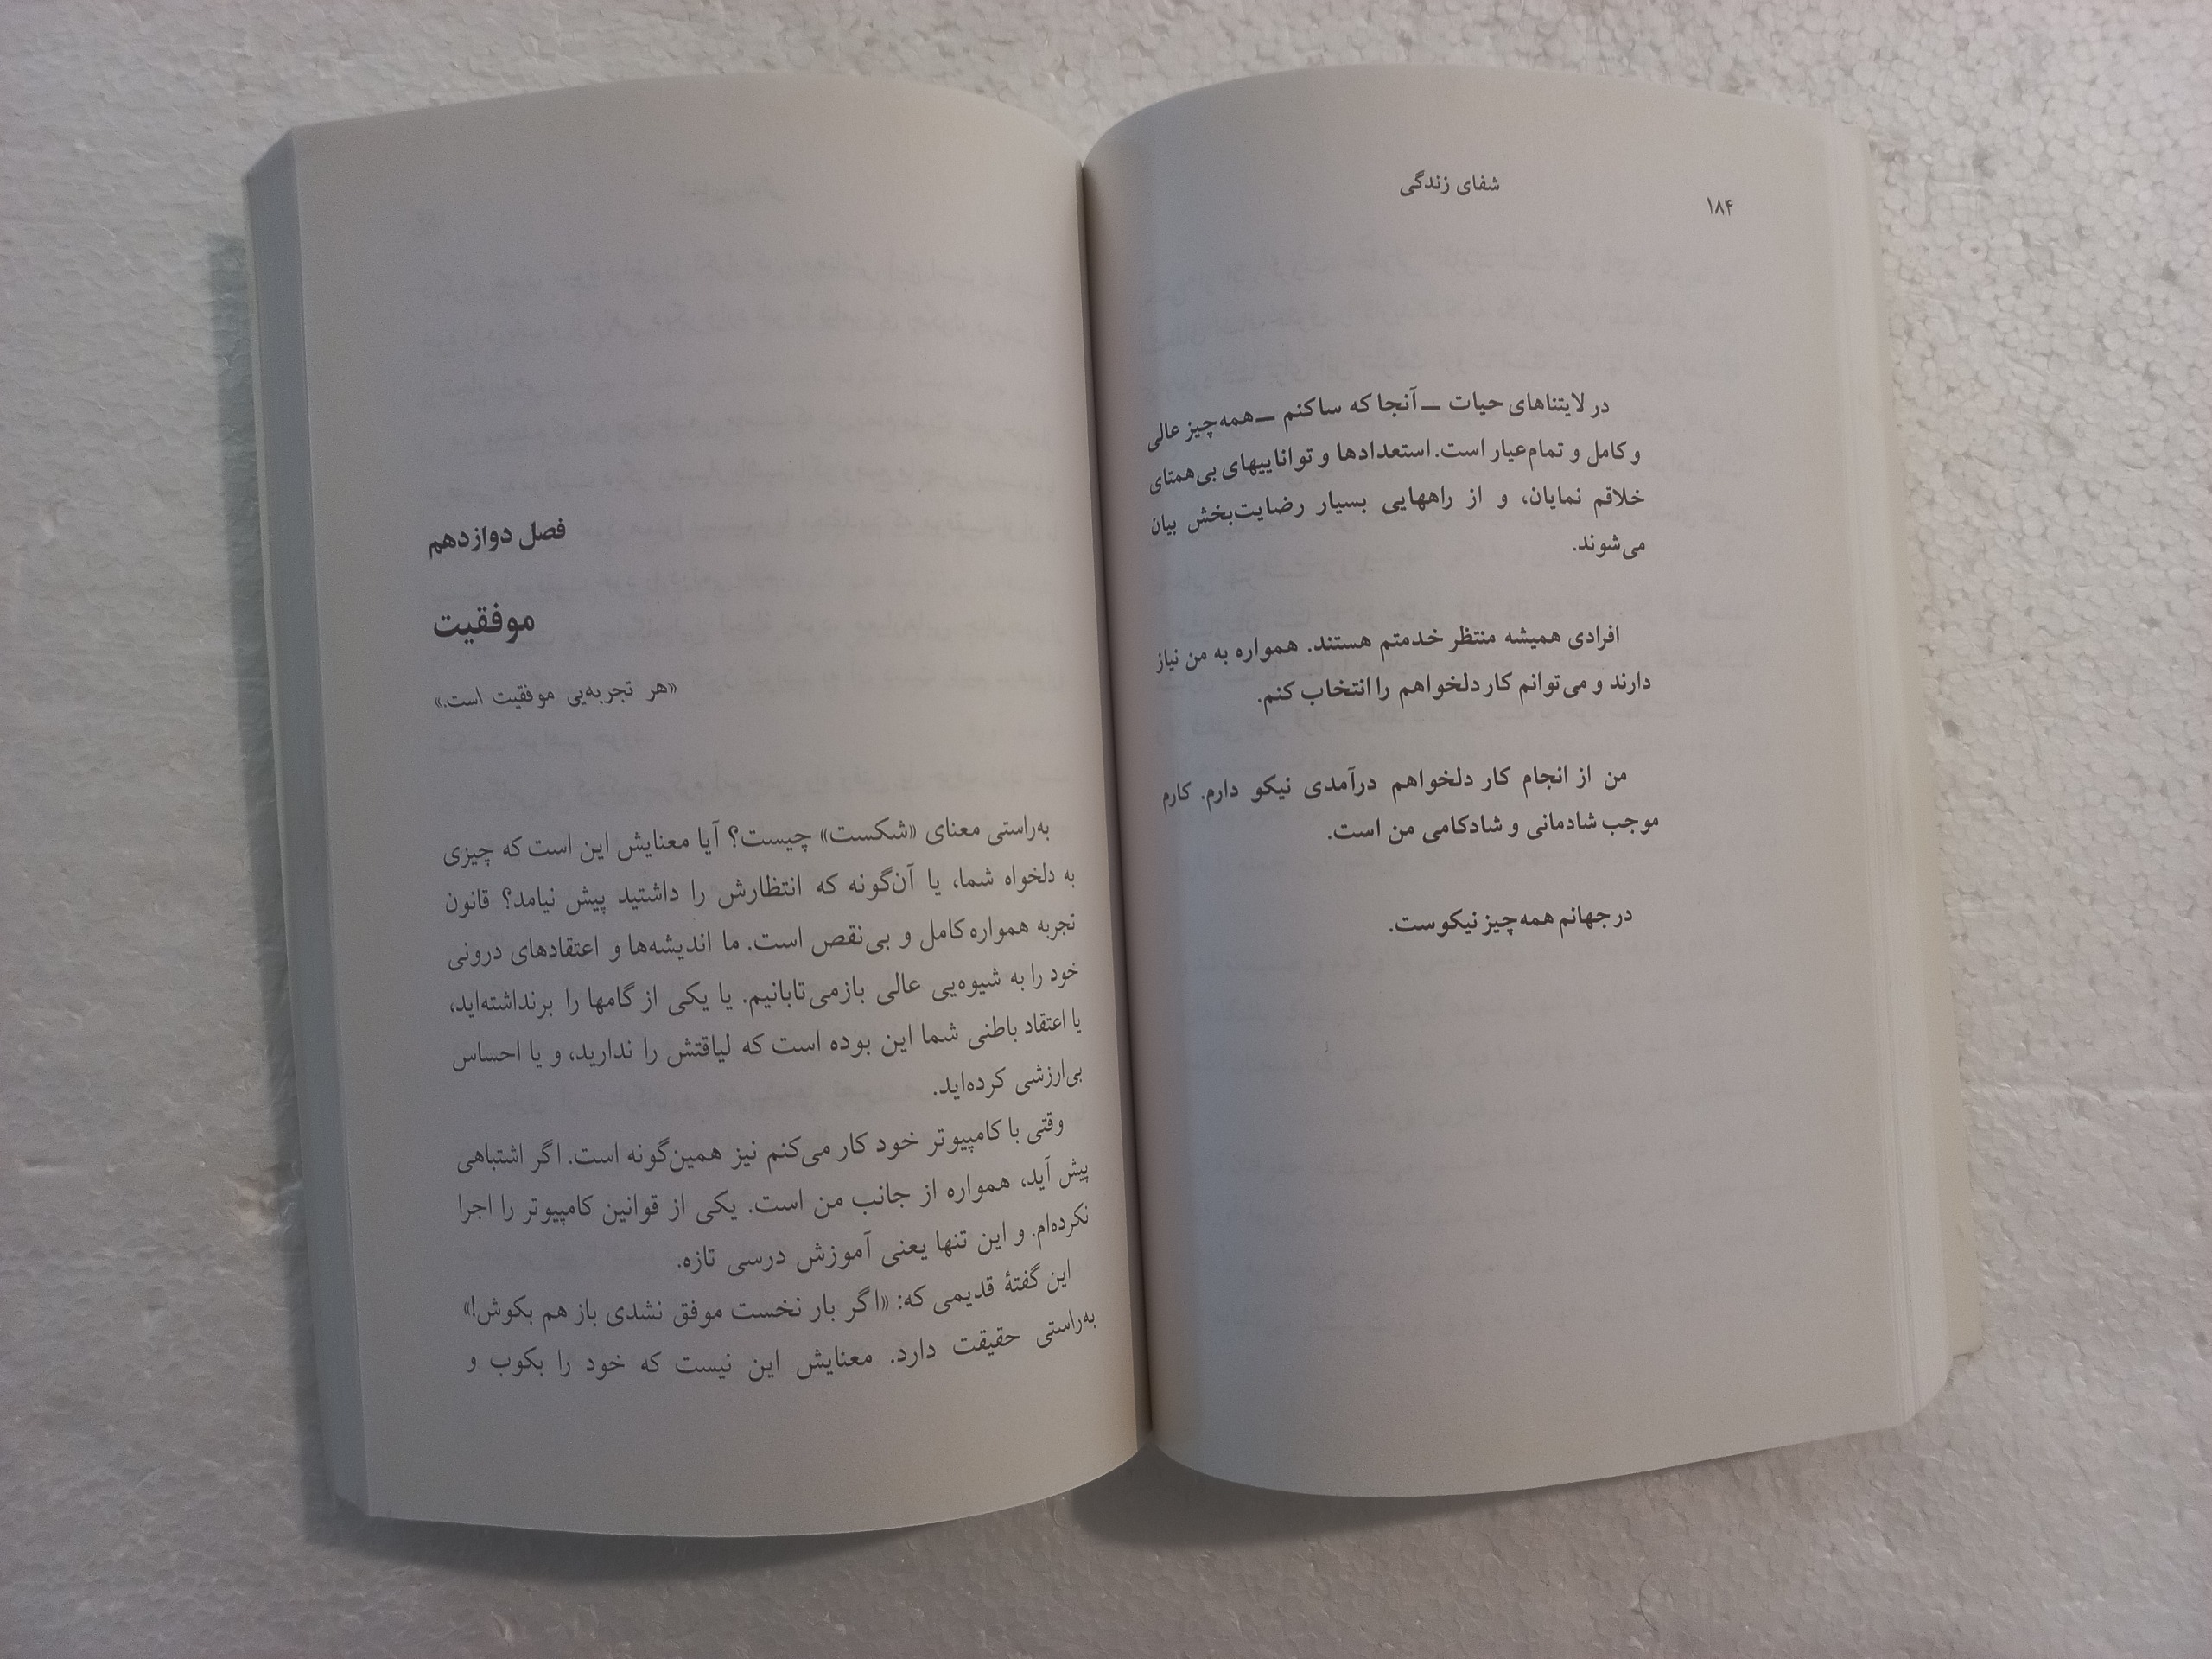 شفای زندگی
۱۸۴
در لایتناهای حیات ــ آنجا که ساکنم ــ همه‌چیز عالی
و کامل و تمام‌عیار است. استعدادها و تواناییهای بی‌همتای
خلاقم نمایان، و از راههایی بسیار رضایت‌بخش بیان
می‌شوند.
افرادی همیشه منتظر خدمتم هستند. همواره به من نیاز
دارند و می‌توانم کار دلخواهم را انتخاب کنم.
من از انجام کار دلخواهم درآمدی نیکو دارم. کارم
موجب شادمانی و شادکامی من است.
در جهانم همه‌چیز نیکوست.
فصل دوازدهم
موفقیت
«هر تجربه‌یی موفقیت است.»
به‌راستی معنای «شکست» چیست؟ آیا معنایش این است که چیزی
به دلخواه شما، یا آن‌گونه که انتظارش را داشتید پیش نیامد؟ قانون
تجربه همواره کامل و بی‌نقص است. ما اندیشه‌ها و اعتقادهای درونی
خود را به شیوه‌یی عالی بازمی‌تابانیم. یا یکی از گامها را برنداشته‌اید،
یا اعتقاد باطنی شما این بوده است که لیاقتش را ندارید، و یا احساس
بی‌ارزشی کرده‌اید.
وقتی با کامپیوتر خود کار می‌کنم نیز همین‌گونه است. اگر اشتباهی
پیش آید، همواره از جانب من است. یکی از قوانین کامپیوتر را اجرا
نکرده‌ام. و این تنها یعنی آموزش درسی تازه.
این گفتهٔ قدیمی که: «اگر بار نخست موفق نشدی باز هم بکوش!»
به‌راستی حقیقت دارد. معنایش این نیست که خود را بکوب و